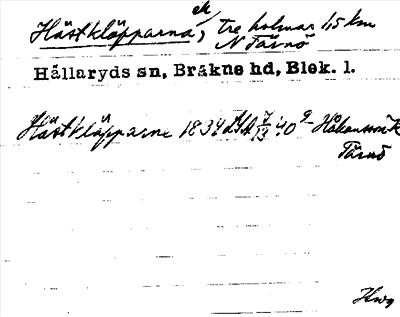 Hästkläpparna, ek tre holmar 1,5 km
N Tärnö
Hällaryds sn, Bräkne hd, Blek. l.
Hästkläpparne 1834 LSA 7/13 40 9 Håkansson K
Tärnö
Hwg